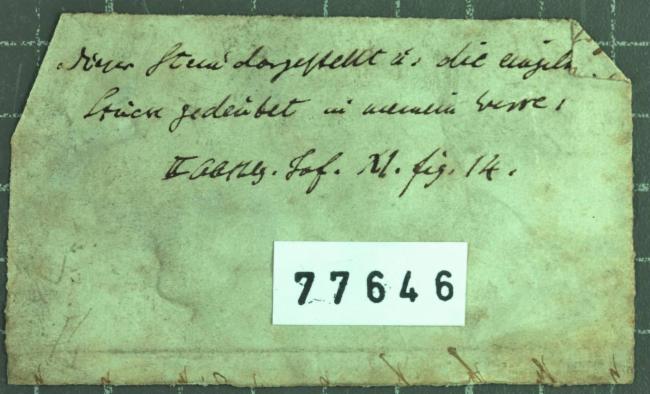 dieser Stein dargestellt u. die einzeln
Stücke gedeutet in meinem Werke,
II Abthlg. Taf. XI. fig. 14.
77646